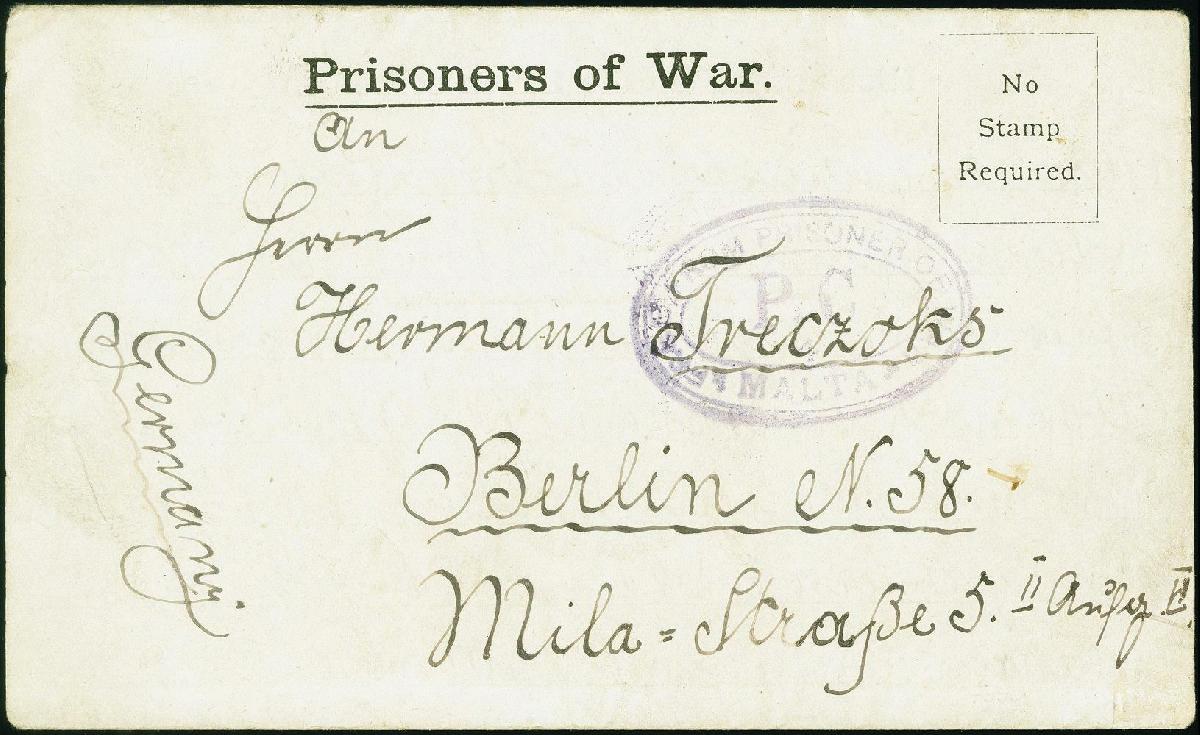 Prisoners of War.
No
Stamp
Required.
An
Herrn
Hermann Treczoks
FROM PRISONER OF
P. C.
MALTA
Berlin N. 58.
Mila=Straße 5. II Aufg II.
Germany